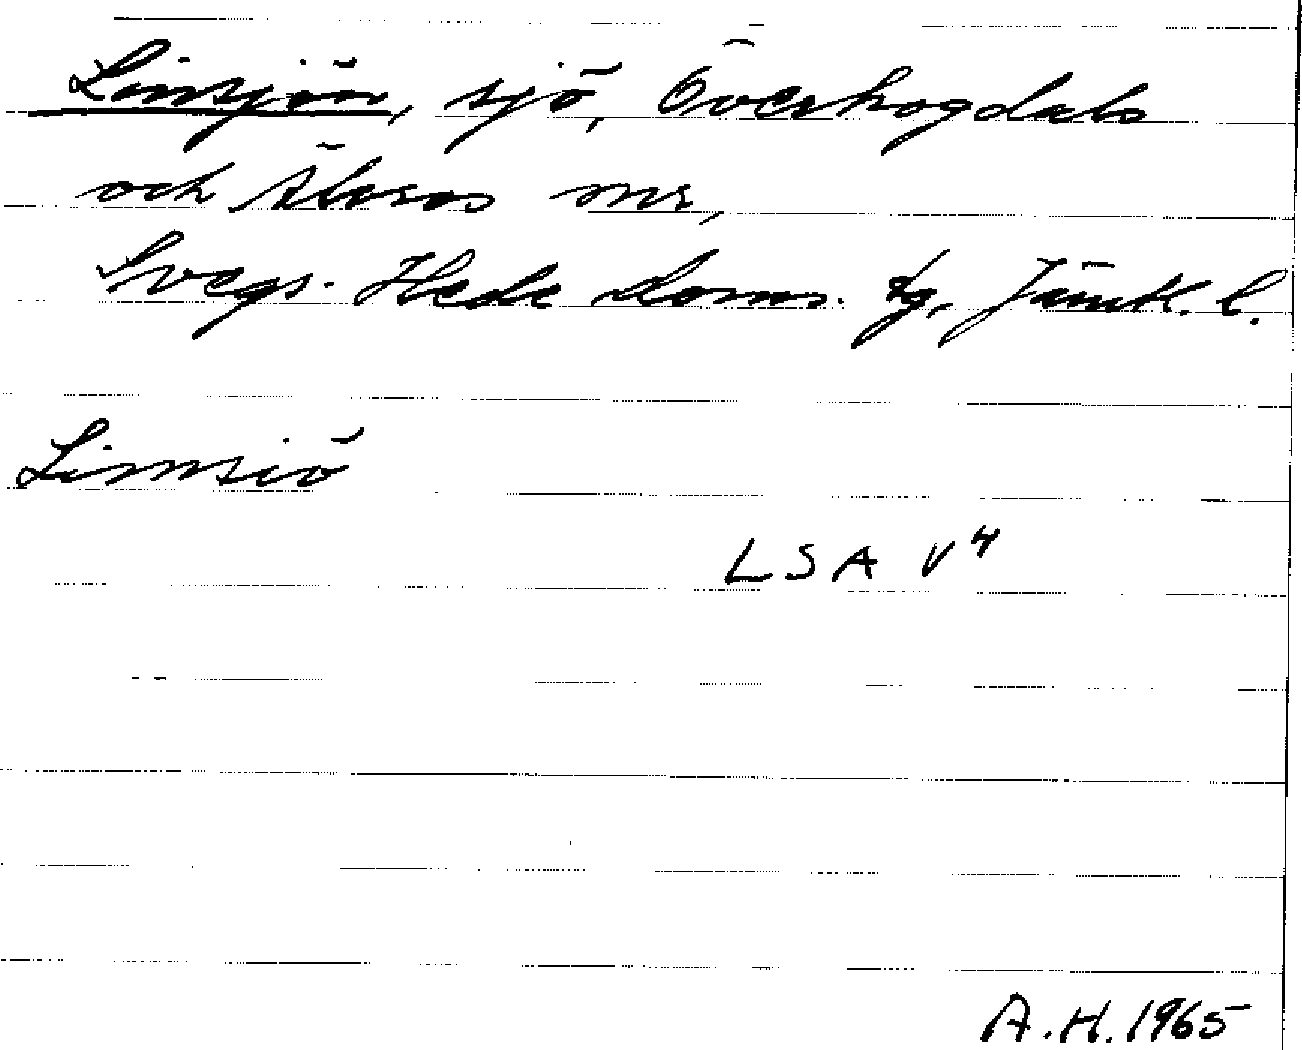 Linsjön, sjö, Överhogdals
och Älvros snr,
Svegs-Hede doms. tg, Jämtl. l.
Linnsiö
LSA V4
A.H. 1965